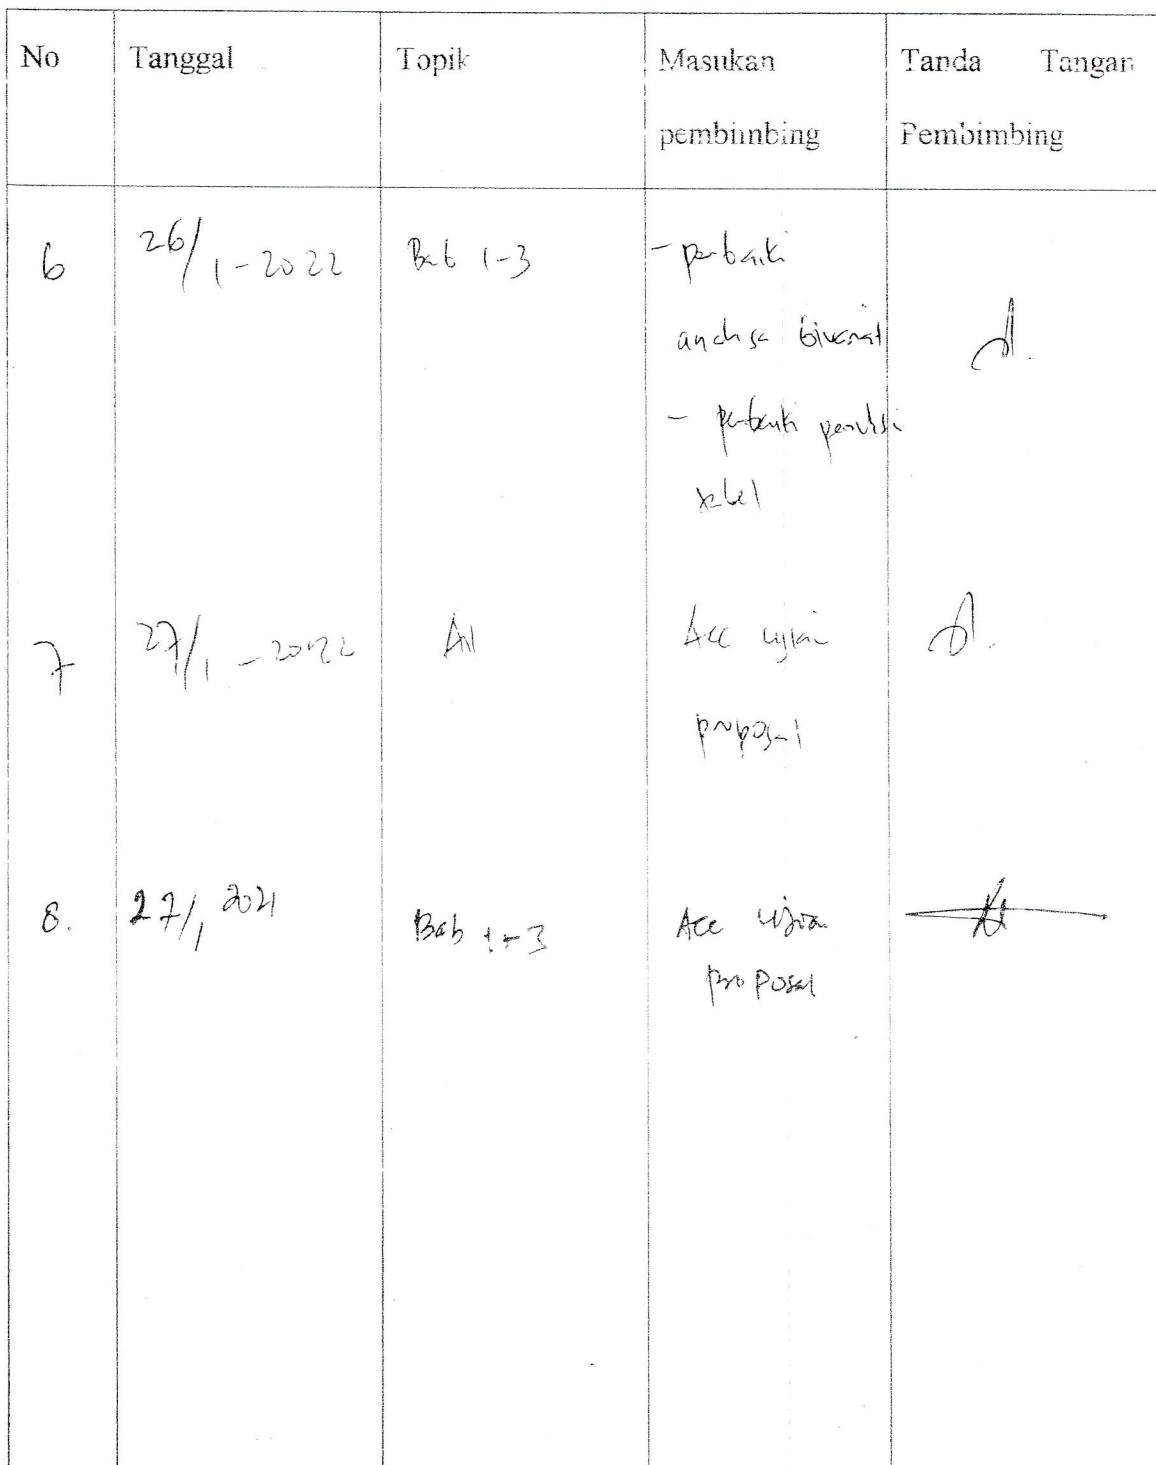 No Tanggal Topik Masukan pembimbing Tanda Tangan Pembimbing
6 26/1-2022 Bab 1-3 - perbaiki
analisa bivariat
- perbaiki penulisa
tabel
7 27/1-2022 All Acc ujian
proposal
8. 27/1 2021 Bab 1-3 Acc ujian
proposal